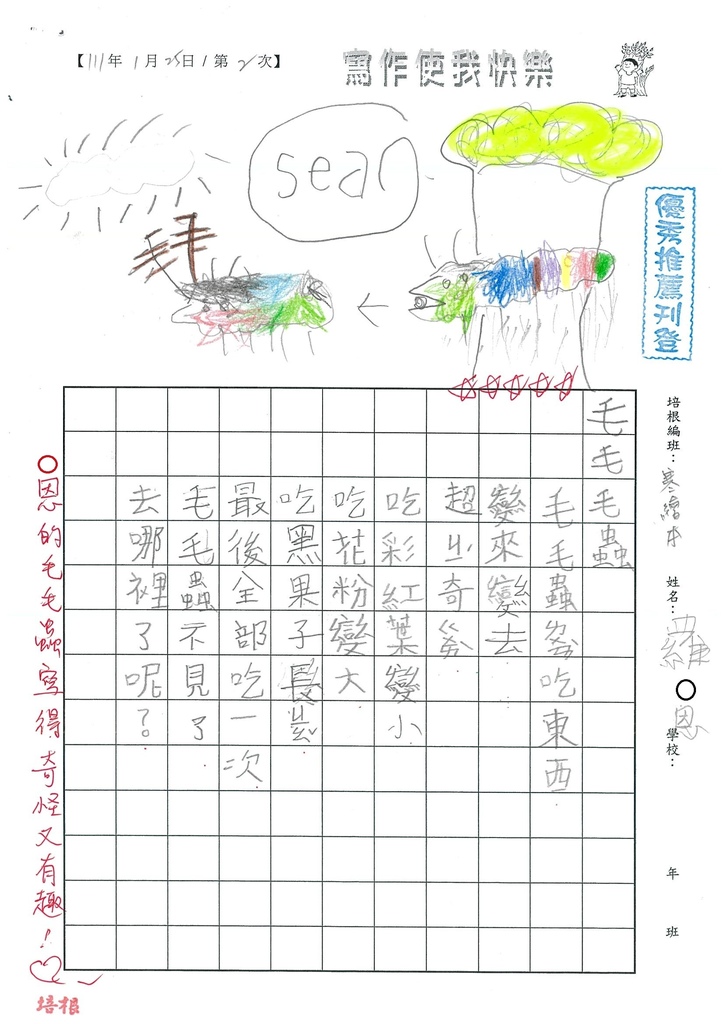 【111年 1月25日/第2次】
寫作使我快樂
sean
優秀推薦刊登
培根編班：寒繪本 姓名：羅○恩 學校： 年 班
毛毛毛蟲
毛毛蟲 吃東西.
變來變去.
超 奇
吃彩紅葉變小.
吃花粉變大.
吃黑果子長
最後全部吃一次.
毛毛蟲不見了.
去哪裡了呢?
○恩的毛毛蟲寫得奇怪又有趣！
培根